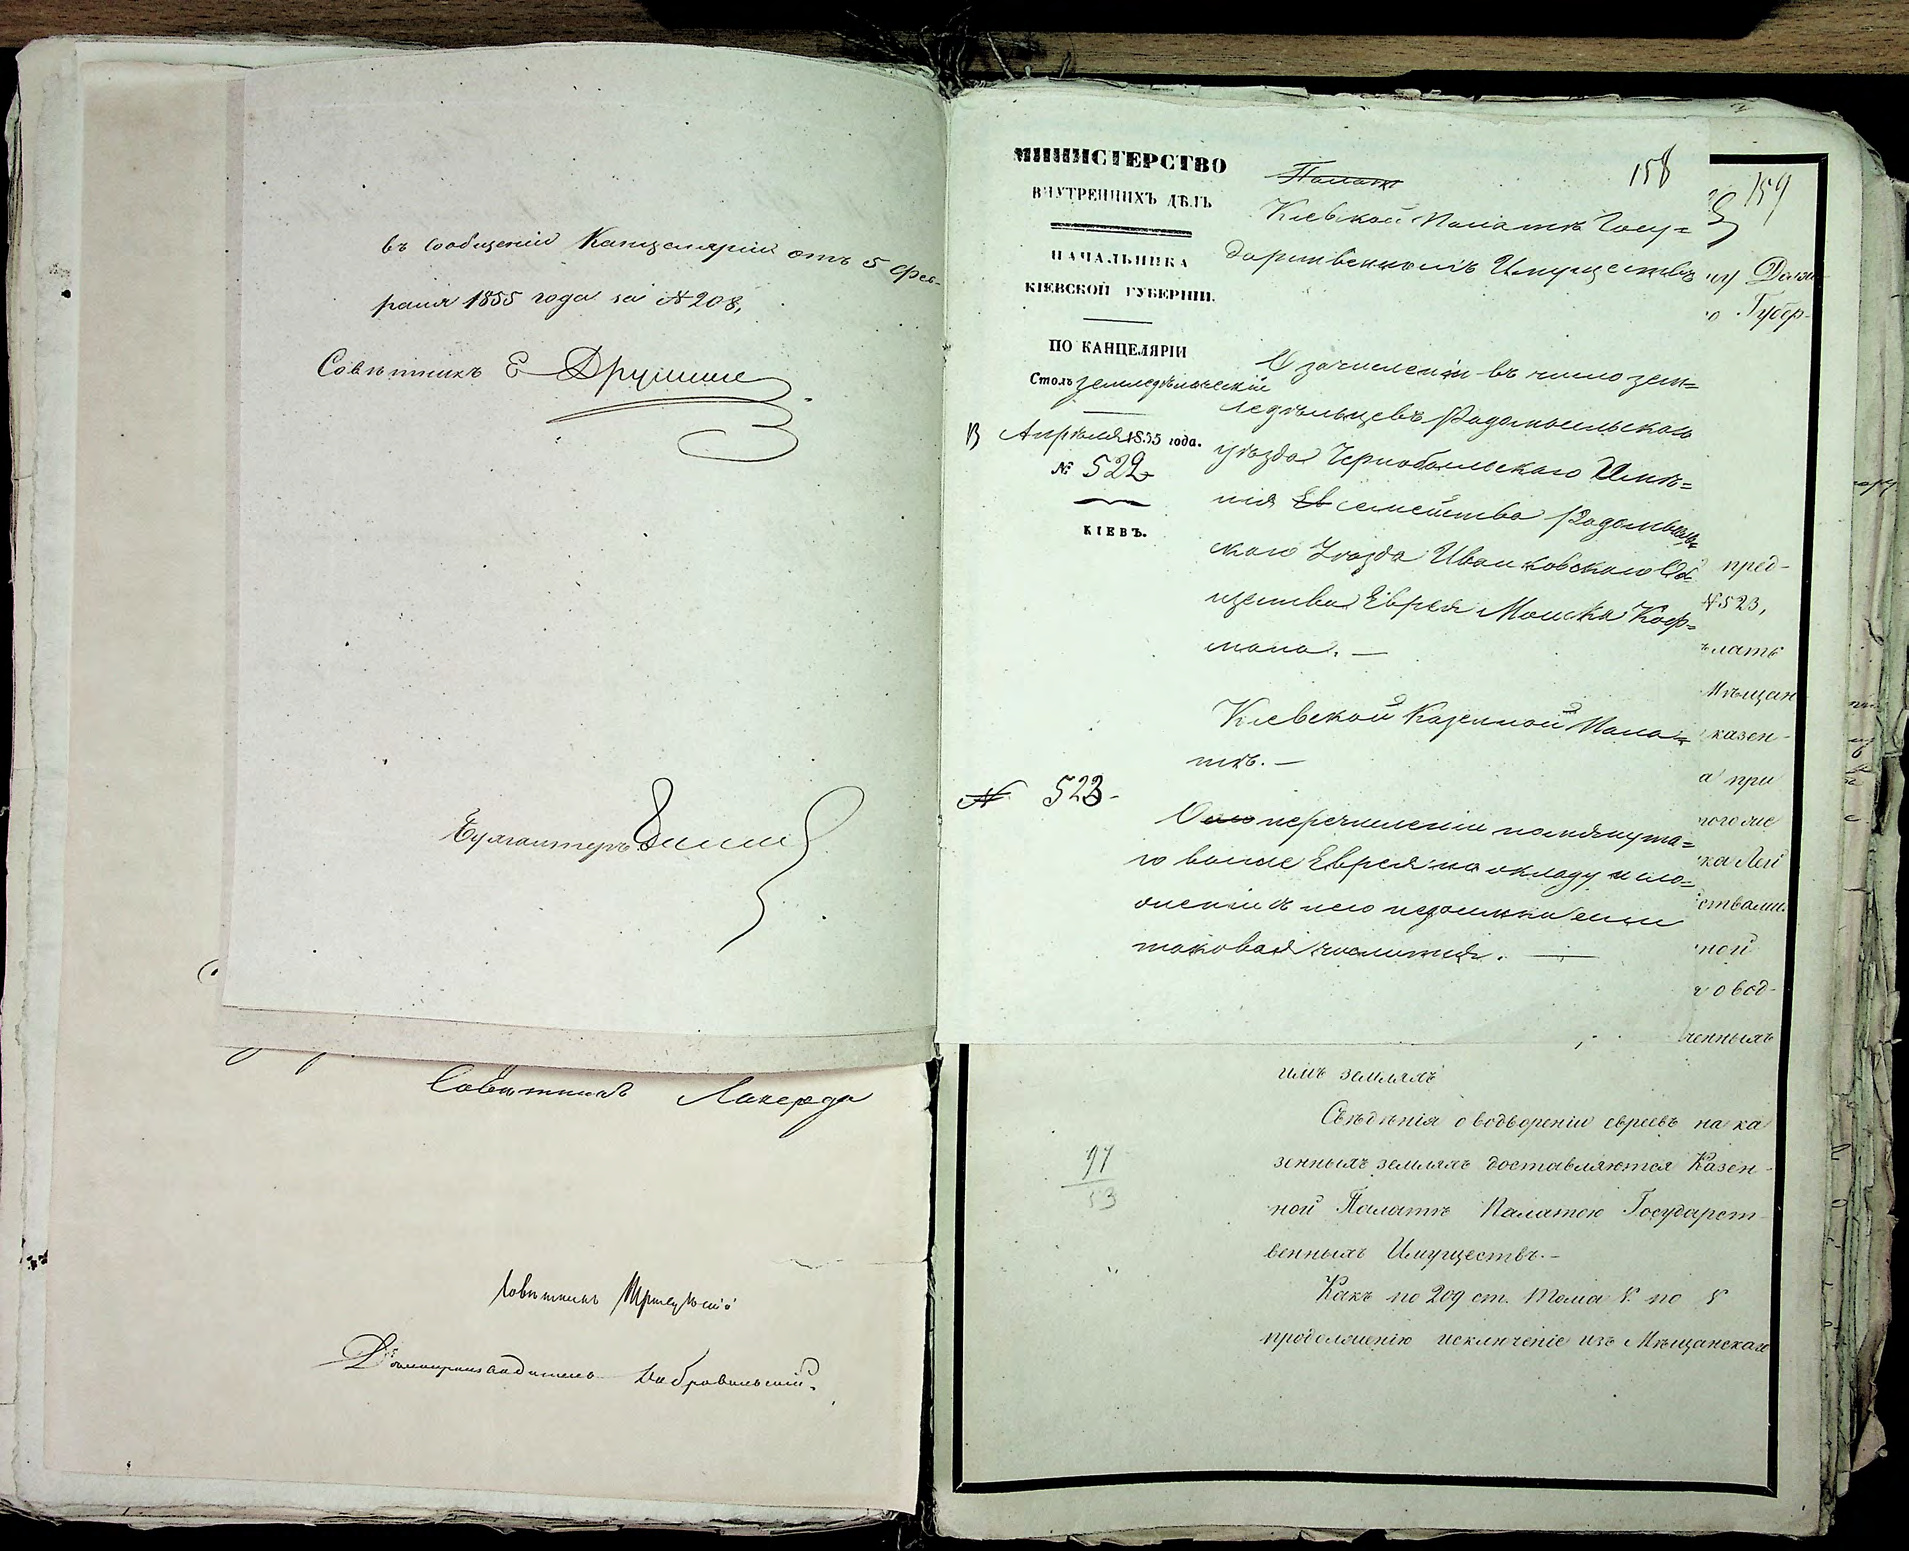 въ сообщеніи Канцеляріи отъ 5 Фев-
раля 1855 года за № 208,
Совѣтникъ
Бухгалтеръ
Совѣтникъ Лакерда
Совѣтникъ
Дѣлопроизводитель
МИНИСТЕРСТВО
ВНУТРЕННИХЪ ДѢЛЪ
НАЧАЛЬНИКА
КІЕВСКОЙ ГУБЕРНІИ.
ПО КАНЦЕЛЯРІИ
Столъ земледѣльческій
13 Апрѣля 1855 года.
№ 522
КІЕВЪ.
158
Палат
Кіевской Палатѣ Госу=
дарственныхъ Имуществъ
О зачисленіи въ число зем=
ледѣльцевъ Радомысльскаго
уѣзда Чернобыльскаго Имѣ=
нія Ев семейства Радомысль
скаго Уѣзда Иванковскаго Об
щества Еврея Мошка Коф=
мана. —
Кіевской Казенной Пала=
тѣ. —
№ 523 -
О перечисленіи помянута=
го выше Еврея по окладу и сло=
женіи съ него недоимки если
таковая числится. —
159
Губер-
пред-
№ 523,
Мѣщан
казен-
а при
ствами.
ной
о вод-
ченныхъ
имъ земляхъ
Свѣдѣнія о водвореніи евреевъ на ка
зенныхъ земляхъ доставляются Казен-
ной Палатѣ Палатою Государст-
венныхъ Имуществъ. -
Какъ по 209 ст. Тома V. по V
продолженію исключеніе изъ Мѣщанскаго
97
53